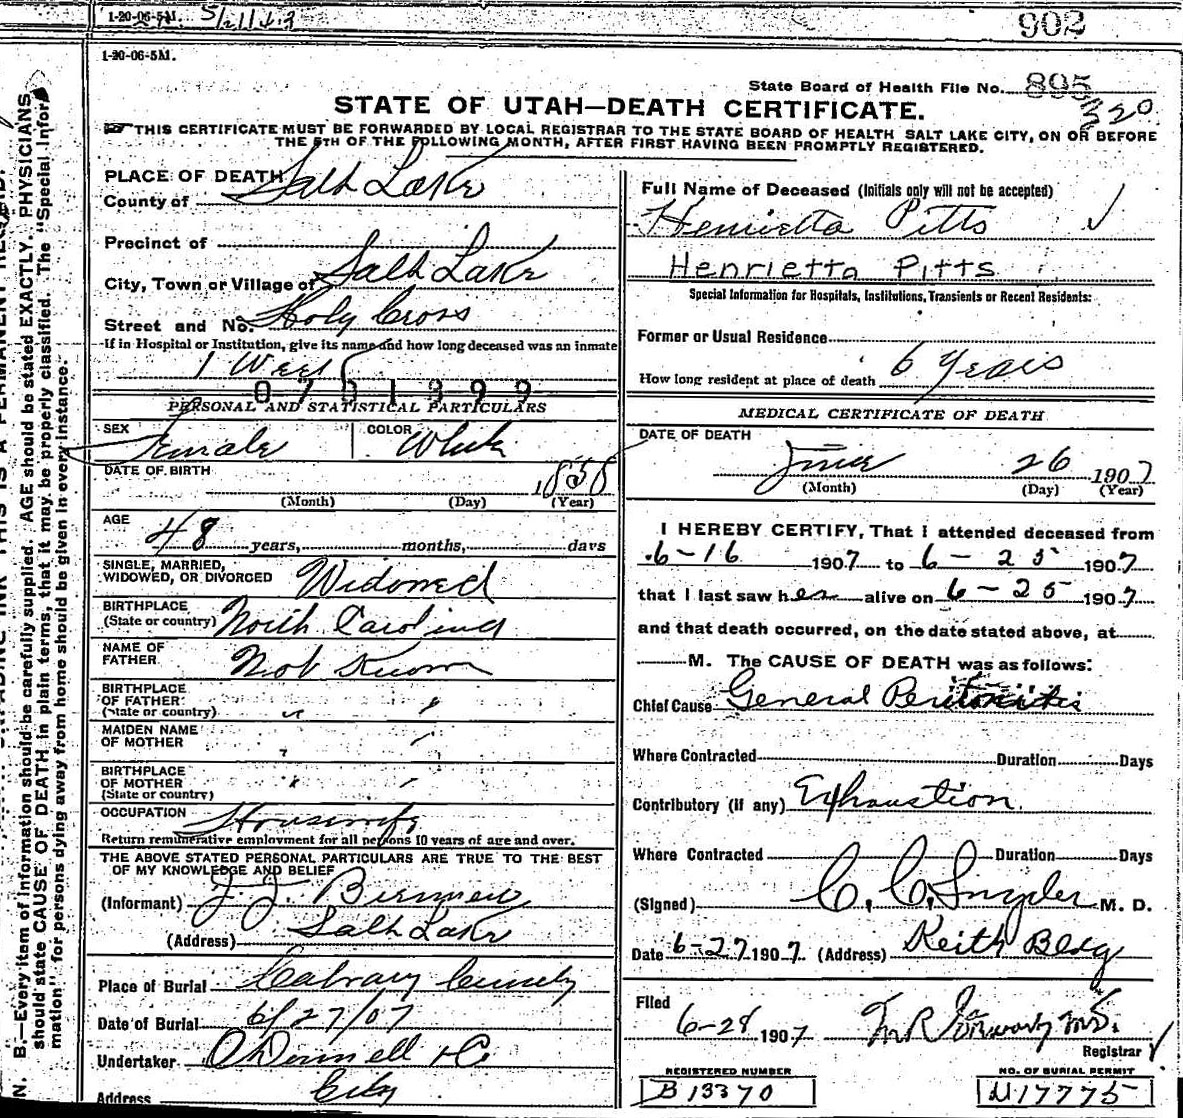 1-20-06-5M.
902
1-20-06-5M.
State Board of Health File No. 895
320
STATE OF UTAH—DEATH CERTIFICATE.
THIS CERTIFICATE MUST BE FORWARDED BY LOCAL REGISTRAR TO THE STATE BOARD OF HEALTH SALT LAKE CITY, ON OR BEFORE
THE 5TH OF THE FOLLOWING MONTH, AFTER FIRST HAVING BEEN PROMPTLY REGISTERED.
PLACE OF DEATH
County of Salt Lake
Precinct of
City, Town or Village of Salt Lake
Street and No. Holy Cross
If in Hospital or Institution, give its name and how long deceased was an inmate
1 Week
0701899
PERSONAL AND STATISTICAL PARTICULARS
SEX Female COLOR White
DATE OF BIRTH 1858
(Month) (Day) (Year)
AGE 48 years, months, days
SINGLE, MARRIED,
WIDOWED, OR DIVORCED Widowed
BIRTHPLACE
(State or country) North Carolina
NAME OF
FATHER Not Known
BIRTHPLACE
OF FATHER
(State or country) " "
MAIDEN NAME
OF MOTHER " "
BIRTHPLACE
OF MOTHER
(State or country) " "
OCCUPATION Housewife
Return remunerative employment for all persons 10 years of age and over.
THE ABOVE STATED PERSONAL PARTICULARS ARE TRUE TO THE BEST
OF MY KNOWLEDGE AND BELIEF
(Informant) J. J.
(Address) Salt Lake
Place of Burial Calvary Cemetery
Date of Burial 6/27/07
Undertaker O'Donnell & Co
Address City
Full Name of Deceased (Initials only will not be accepted)
Henrietta Pitts
Henrietta Pitts
Special Information for Hospitals, Institutions, Transients or Recent Residents:
Former or Usual Residence
How long resident at place of death 6 Years
MEDICAL CERTIFICATE OF DEATH
DATE OF DEATH
June 26 1907
(Month) (Day) (Year)
I HEREBY CERTIFY, That I attended deceased from
6-16 1907 to 6-25 1907
that I last saw her alive on 6-25 1907
and that death occurred, on the date stated above, at
M. The CAUSE OF DEATH was as follows:
Chief Cause General Peritonitis
Where Contracted Duration Days
Contributory (if any) Exhaustion
Where Contracted Duration Days
(Signed) C. C. Snyder M. D.
Date 6-27 1907 (Address) Keith Bldg
Filed
6-28 1907 M.D.
Registrar
REGISTERED NUMBER
B 13370
NO. OF BURIAL PERMIT
N17775
N. B.—Every item of information should be carefully supplied. AGE should be stated EXACTLY. PHYSICIANS
should state CAUSE OF DEATH in plain terms, that it may be properly classified. The "Special Infor-
mation" for persons dying away from home should be given in every instance.